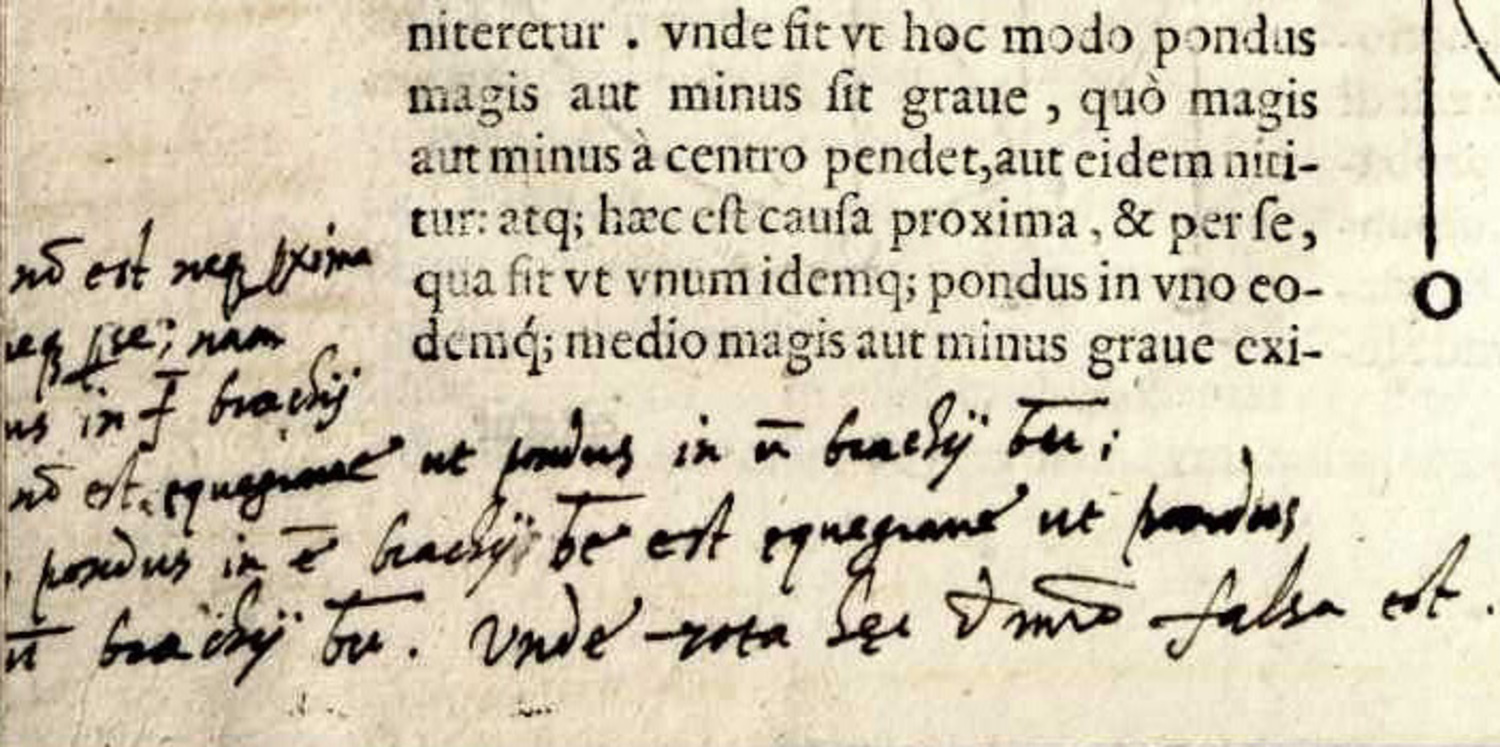 niteretur . vnde fit vt hoc modo pondus
magis aut minus ſit graue , quò magis
aut minus à centro pendet,aut eidem niti-
tur: atq; hæc eſt cauſa proxima , & per ſe,
qua fit vt vnum idemq; pondus in vno eo-
demq́; medio magis aut minus graue exi-
O
nō est neq ꝓxima
neq ꝑse; nam
us in f̄ brachij
nō est equegraue ut pondus in ū brachij b̄u;
pondus in ē brachij b̄e est equegraue ut pondus
ū brachij b̄u. Vnde tota hęc falsa est.